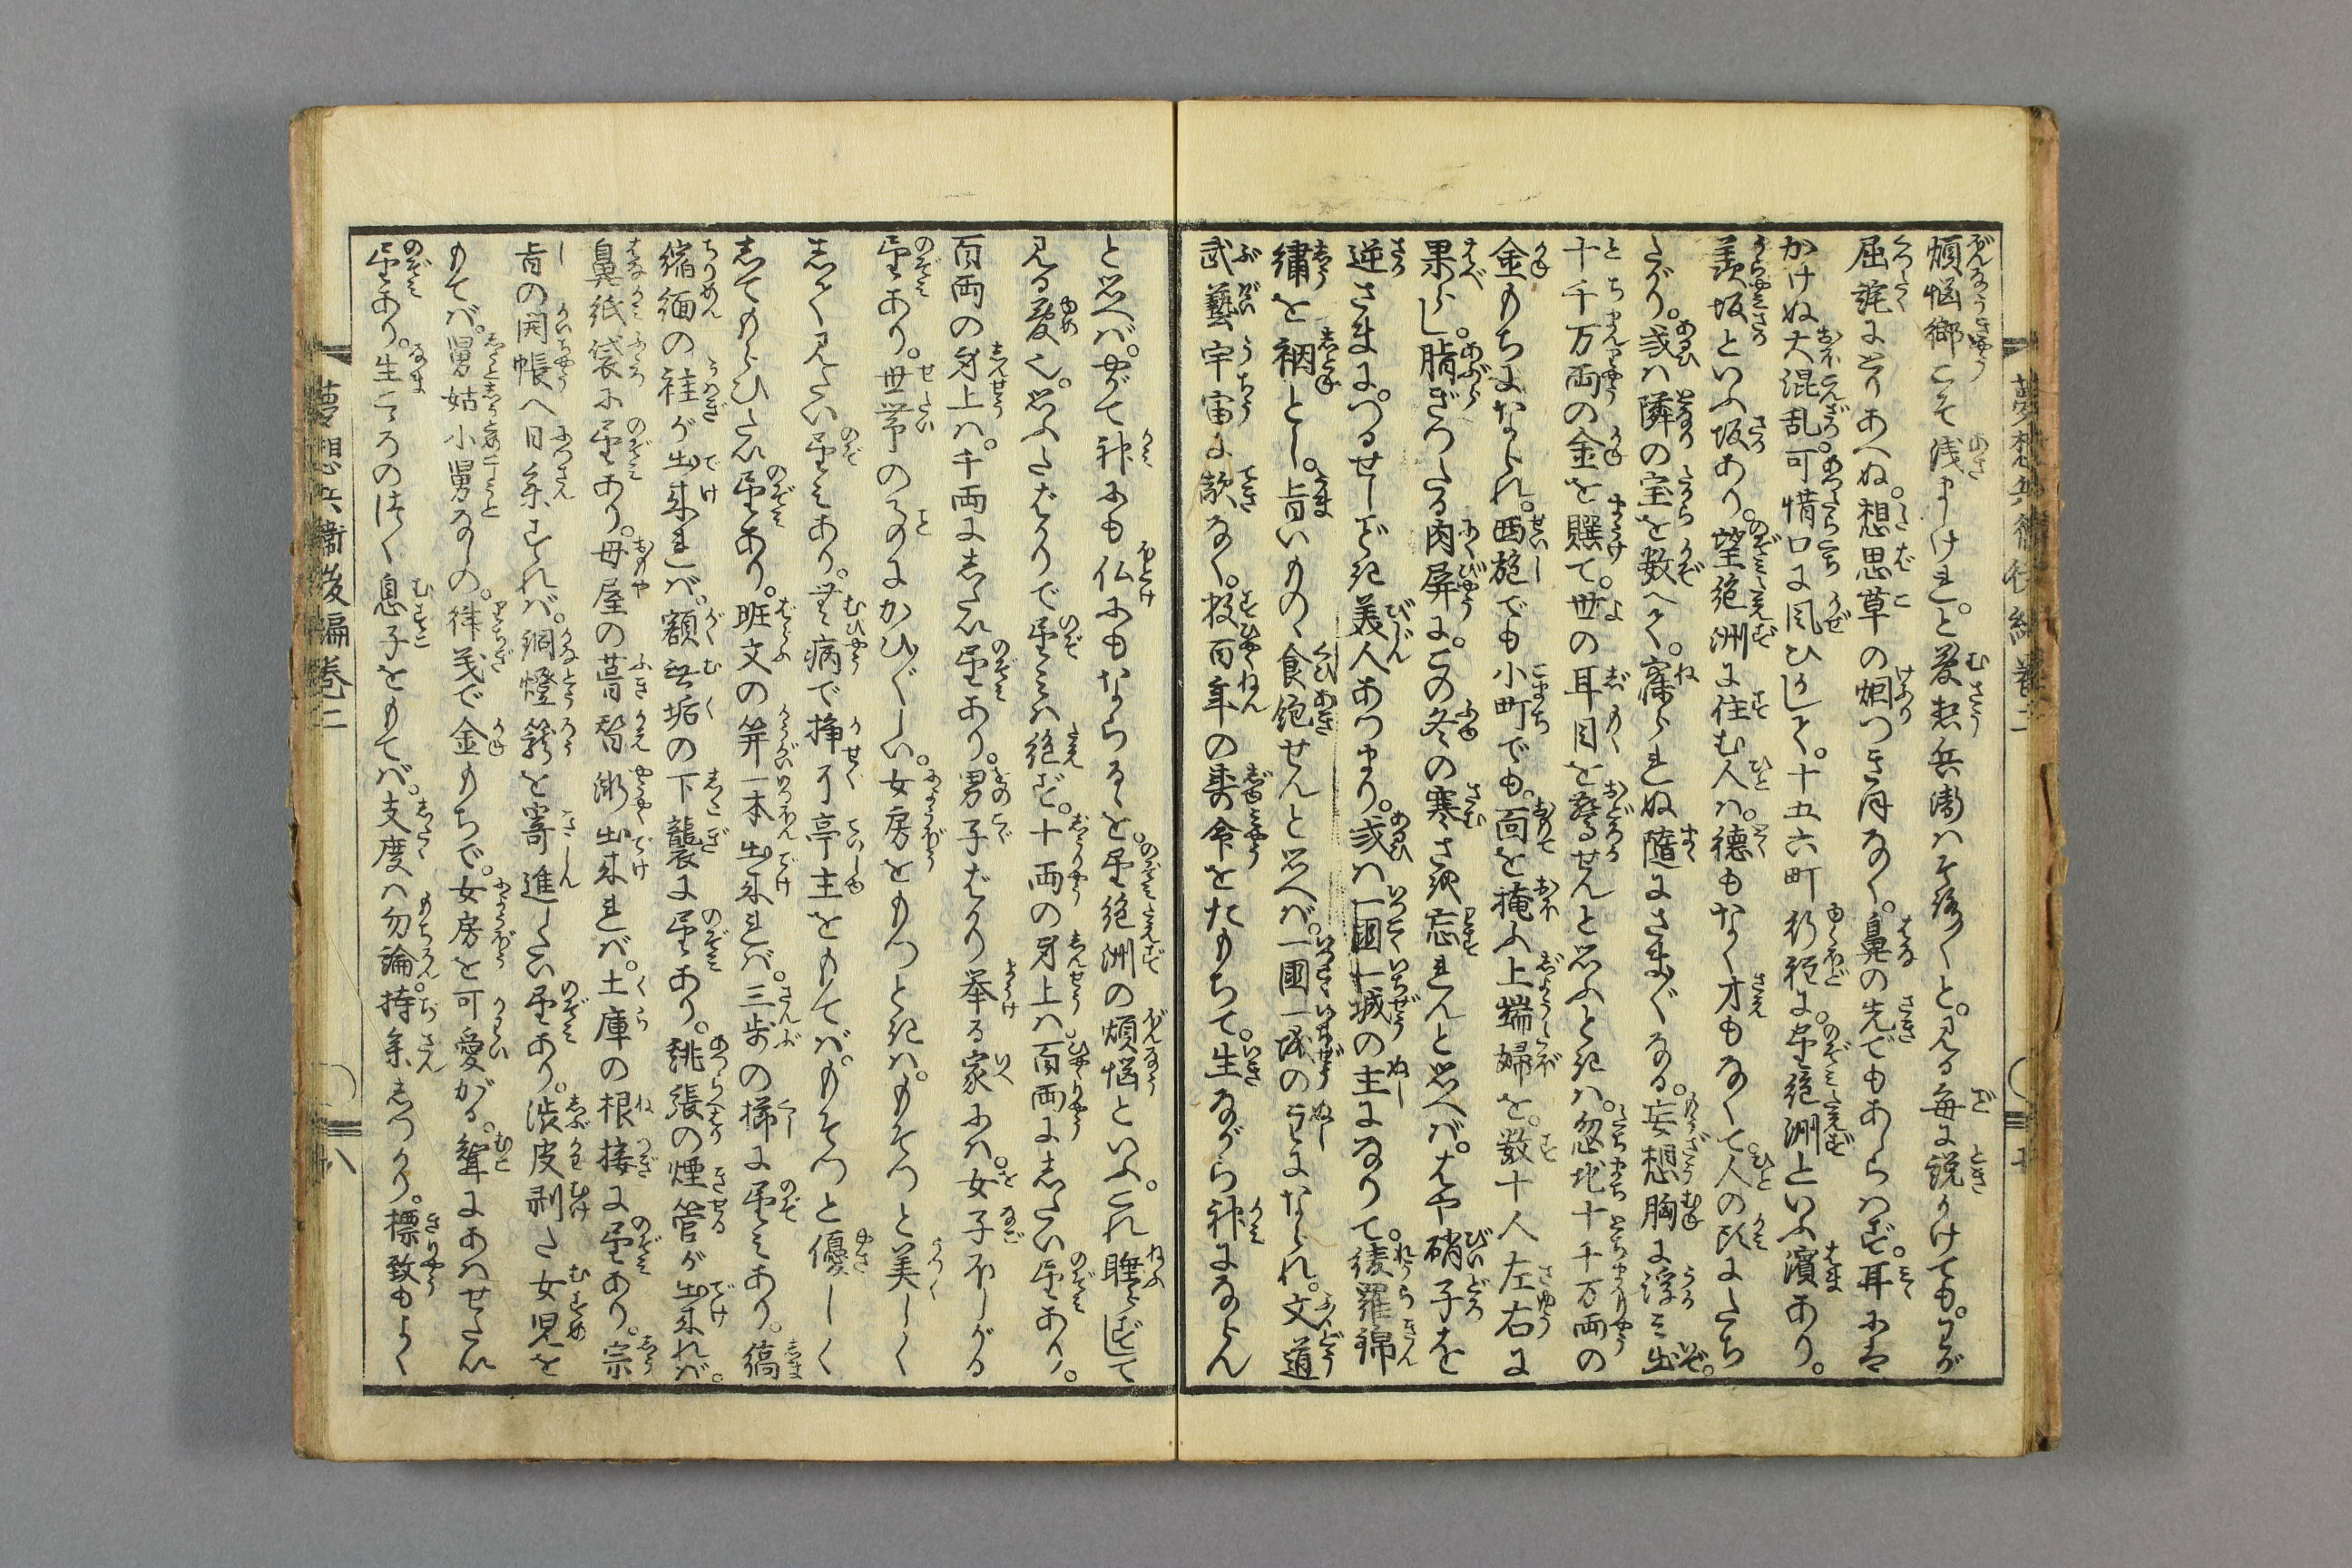 煩悩郷こそ浅ましけれ。と夢想兵衛はそろ〳〵と。見る毎に説かけても。わが
屈詫にとりあへぬ。想思草の烟つき月なく。鼻の先でもあらはず。耳には
かけぬ大混乱。可惜口に風ひかして。十五六町行程に。望絶洲といふ濱あり。
羨坂といふ坂あり。望絶洲に住む人は。徳もなく才もなくて。人の跂にたち
たがり。或は隣の宝を数へて。寐られぬ随にさまぐなる。妄想胸に浮み出。
十千万両の金を贃て。世の耳目を驚せんと思ふときは。忽地十千万両の
金もちになられ。西施でも小町でも。面を掩ふ上端婦を。数十人左右に
果らし。脂ぎつたる肉屏に。この冬の寒さを忘れんと思へば。はや硝子を
逆さまに。つるせしごとき美人あつまり。或は一國一城の主になりて。綾羅錦
繍を裀とし。旨いもの食飽せんと思へば。一國一城の主になられ。文道
武藝宇宙に敵なく。数百年の寿命をたもちて。生ながら神にならん
と思へば。やがて神にも仏にもならるゝを。望絶洲の煩悩といふ。これ睡らずして
見る夢也。思ふたばかりで望みは絶ず。十両の身上は百両にしたい望あり。
百両の身上は。千両にしたい望あり。男子ばかり挙る家には。女子ほしがる
望あり。世帯のことにかひ〴〵しい。女房をもつときは。もそつと美しく
して見たい望みあり。無病で挣ぐ亭主をもてば。もそつと優しく
してもらひたい望あり。斑文の笄一本出来れば。三歩の櫛に望みあり。縞
縮緬の袿が出来れば。額無垢の下襲に望あり。誂張の煙管が出来れば。
鼻紙袋に望あり。母屋の葺替漸出来れば。土庫の根接に望あり。宗
旨の開帳へ日参すれば。銅燈籠を寄進したい望あり。渋皮剥た女児を
もてば。舅姑小舅なしの。律義で金もちで。女房を可愛がる。聟にあはせたい
望あり。生ごゝろのつく息子をもてば。支度は勿論。持参しつかり。標致もよく
夢想兵衛後編巻二
八